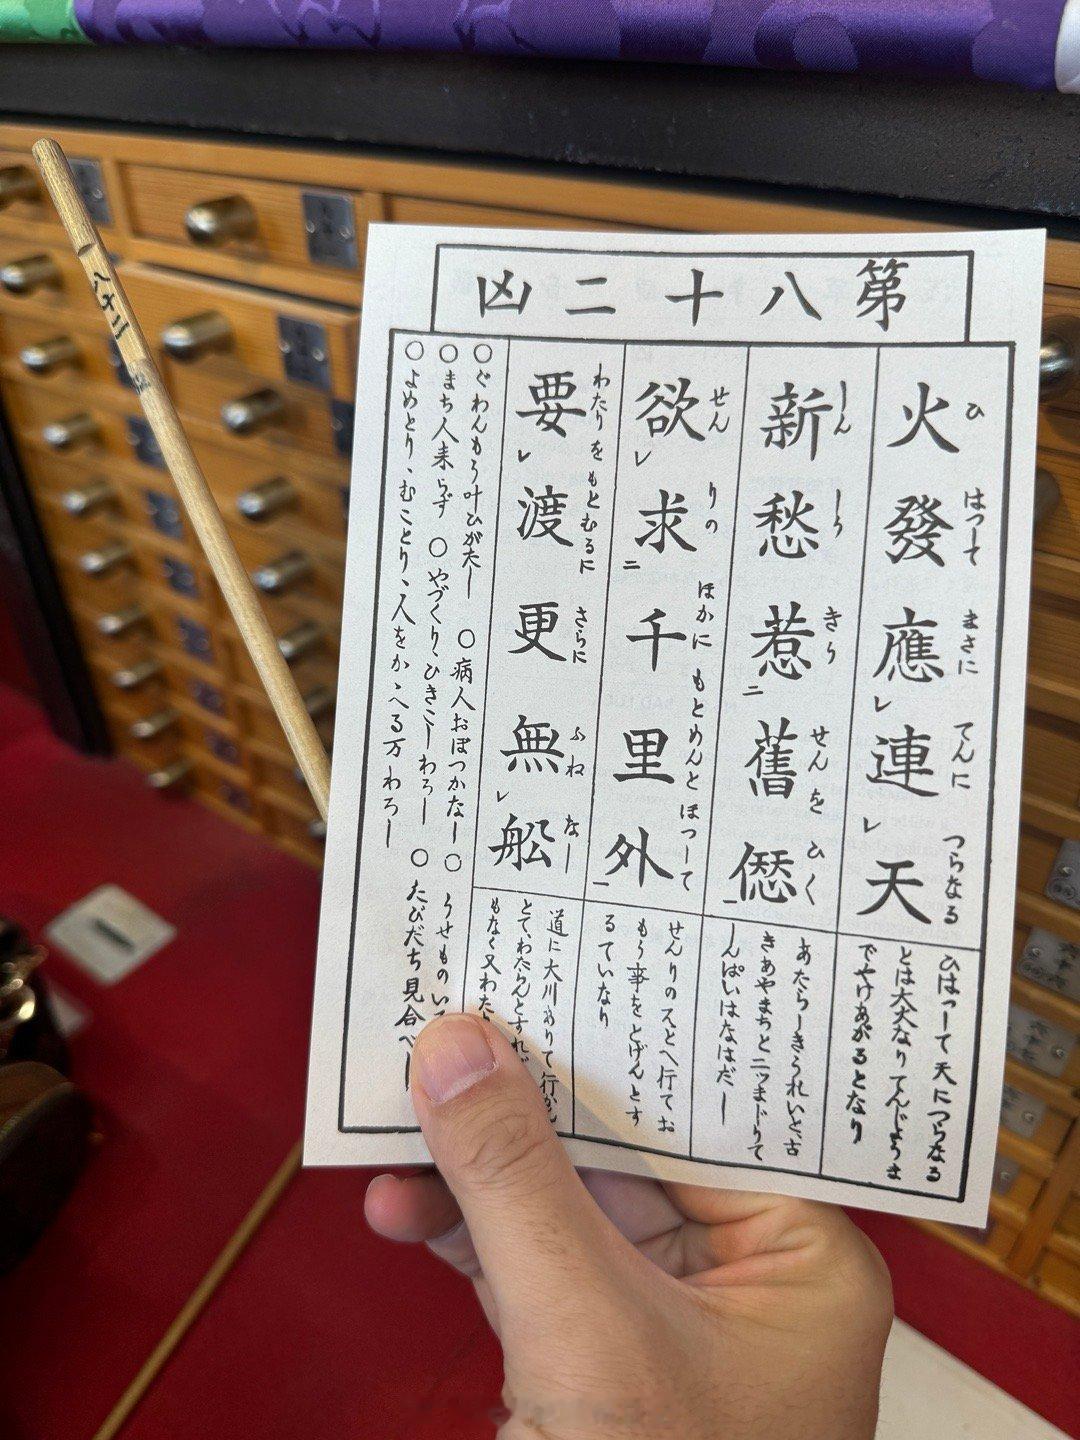 第八十二凶
火發應連天
ひ はつして まさに てんに つらなる
新愁惹舊愆
しん しう きう せんを ひく
欲求千里外
せん りの ほかに もとめんと ほつして
要渡更無船
わたりを もとむるに さらに ふねなし
ひはつして天につらなる
とは大火なりてんじようま
でやけあがるとなり
あたらしきうれいと、古
きあやまちと二ツまじりて
しんぱいはなはだし
せんりのスとへ行てお
もう事をとげんとす
るていなり
道に大川ありて行かん
とて、わたらんとすれど
もなく又わたら
○ぐわんもう叶ひがたし ○病人おぼつかなし ○うせものい
○まち人来らず ○やづくり、ひきこしわろし ○たびだち見合べし
○よめとり、むことり、人をかゝへる万わろし
八十二